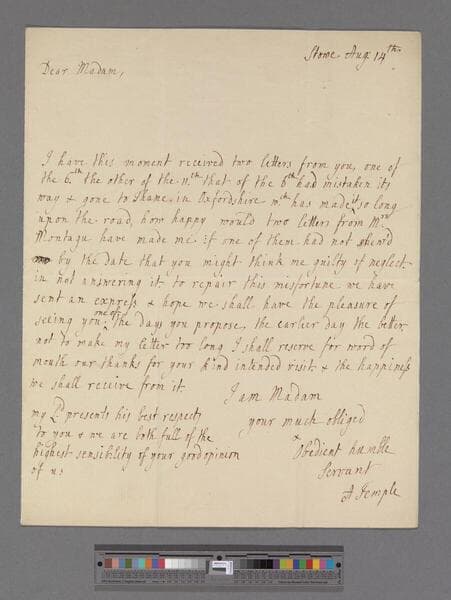 Stowe Aug: 14th
Dear Madam,
I have this moment received two letters from you, one of
the 6.th the other of the 11.th that of the 6th had mistaken its
way & gone to Thame, in Oxfordshire wch has made it so long
upon the road, how happy would two letters from Mrs
Montagu have made me if one of them had not shew'd
by the date that you might think me guilty of neglect
in not answering it, to repair this misfortune we have
sent an express & hope we shall have the pleasure of
seeing you one of the days you propose, the earlier day the better
not to make my letter too long I shall reserve for word of
mouth our thanks for your kind intended visit & the happiness
we shall receive from it.
I am Madam
your much obliged
& Obedient humble
Servant
A Temple
my Ld presents his best respects
to you & we are both full of the
highest sensibility of your good opinion
of us